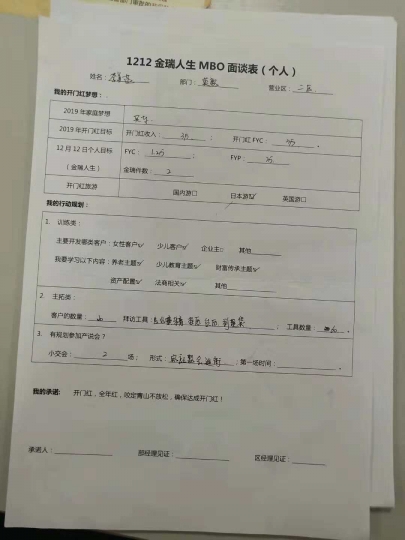 1212 金瑞人生 MBO 面谈表（个人）
姓名： 部门： 营业区：二区
我的开门红梦想：
2019 年家庭梦想
2019 年开门红目标 开门红收入： 开门红 FYC：
12 月 12 日个人目标 FYC： FYP：
（金瑞人生） 金瑞件数：2
开门红旅游 国内游□ 日本游☑ 英国游□
我的行动规划：
1. 训练类：
主要开发哪类客户：女性客户☑ 少儿客户☑ 企业主□ 其他
我要学习以下内容：养老主题☑ 少儿教育主题☑ 财富传承主题☑
资产配置☑ 法商相关☑ 其他
2. 主拓类：
客户的数量： 拜访工具： 工具数量：
3. 有规划参加产说会？
小交会：2 场； 形式： ；第一场时间：
我的承诺： 开门红，全年红，咬定青山不放松，确保达成开门红！
承诺人： 部经理见证： 区经理见证：